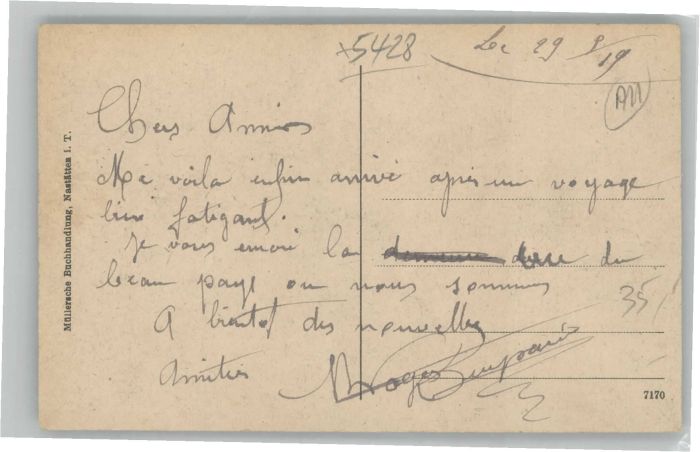 5428
Le 29 9/19
AM
Chers Amis
Me voila enfin arrivé après un voyage
bien fatigant.
Je vous envoie la vue du
beau pays ou nous sommes
35/
A bientot des nouvelles
Amities Roger
7170
Müllersche Buchhandlung, Nastätten i. T.